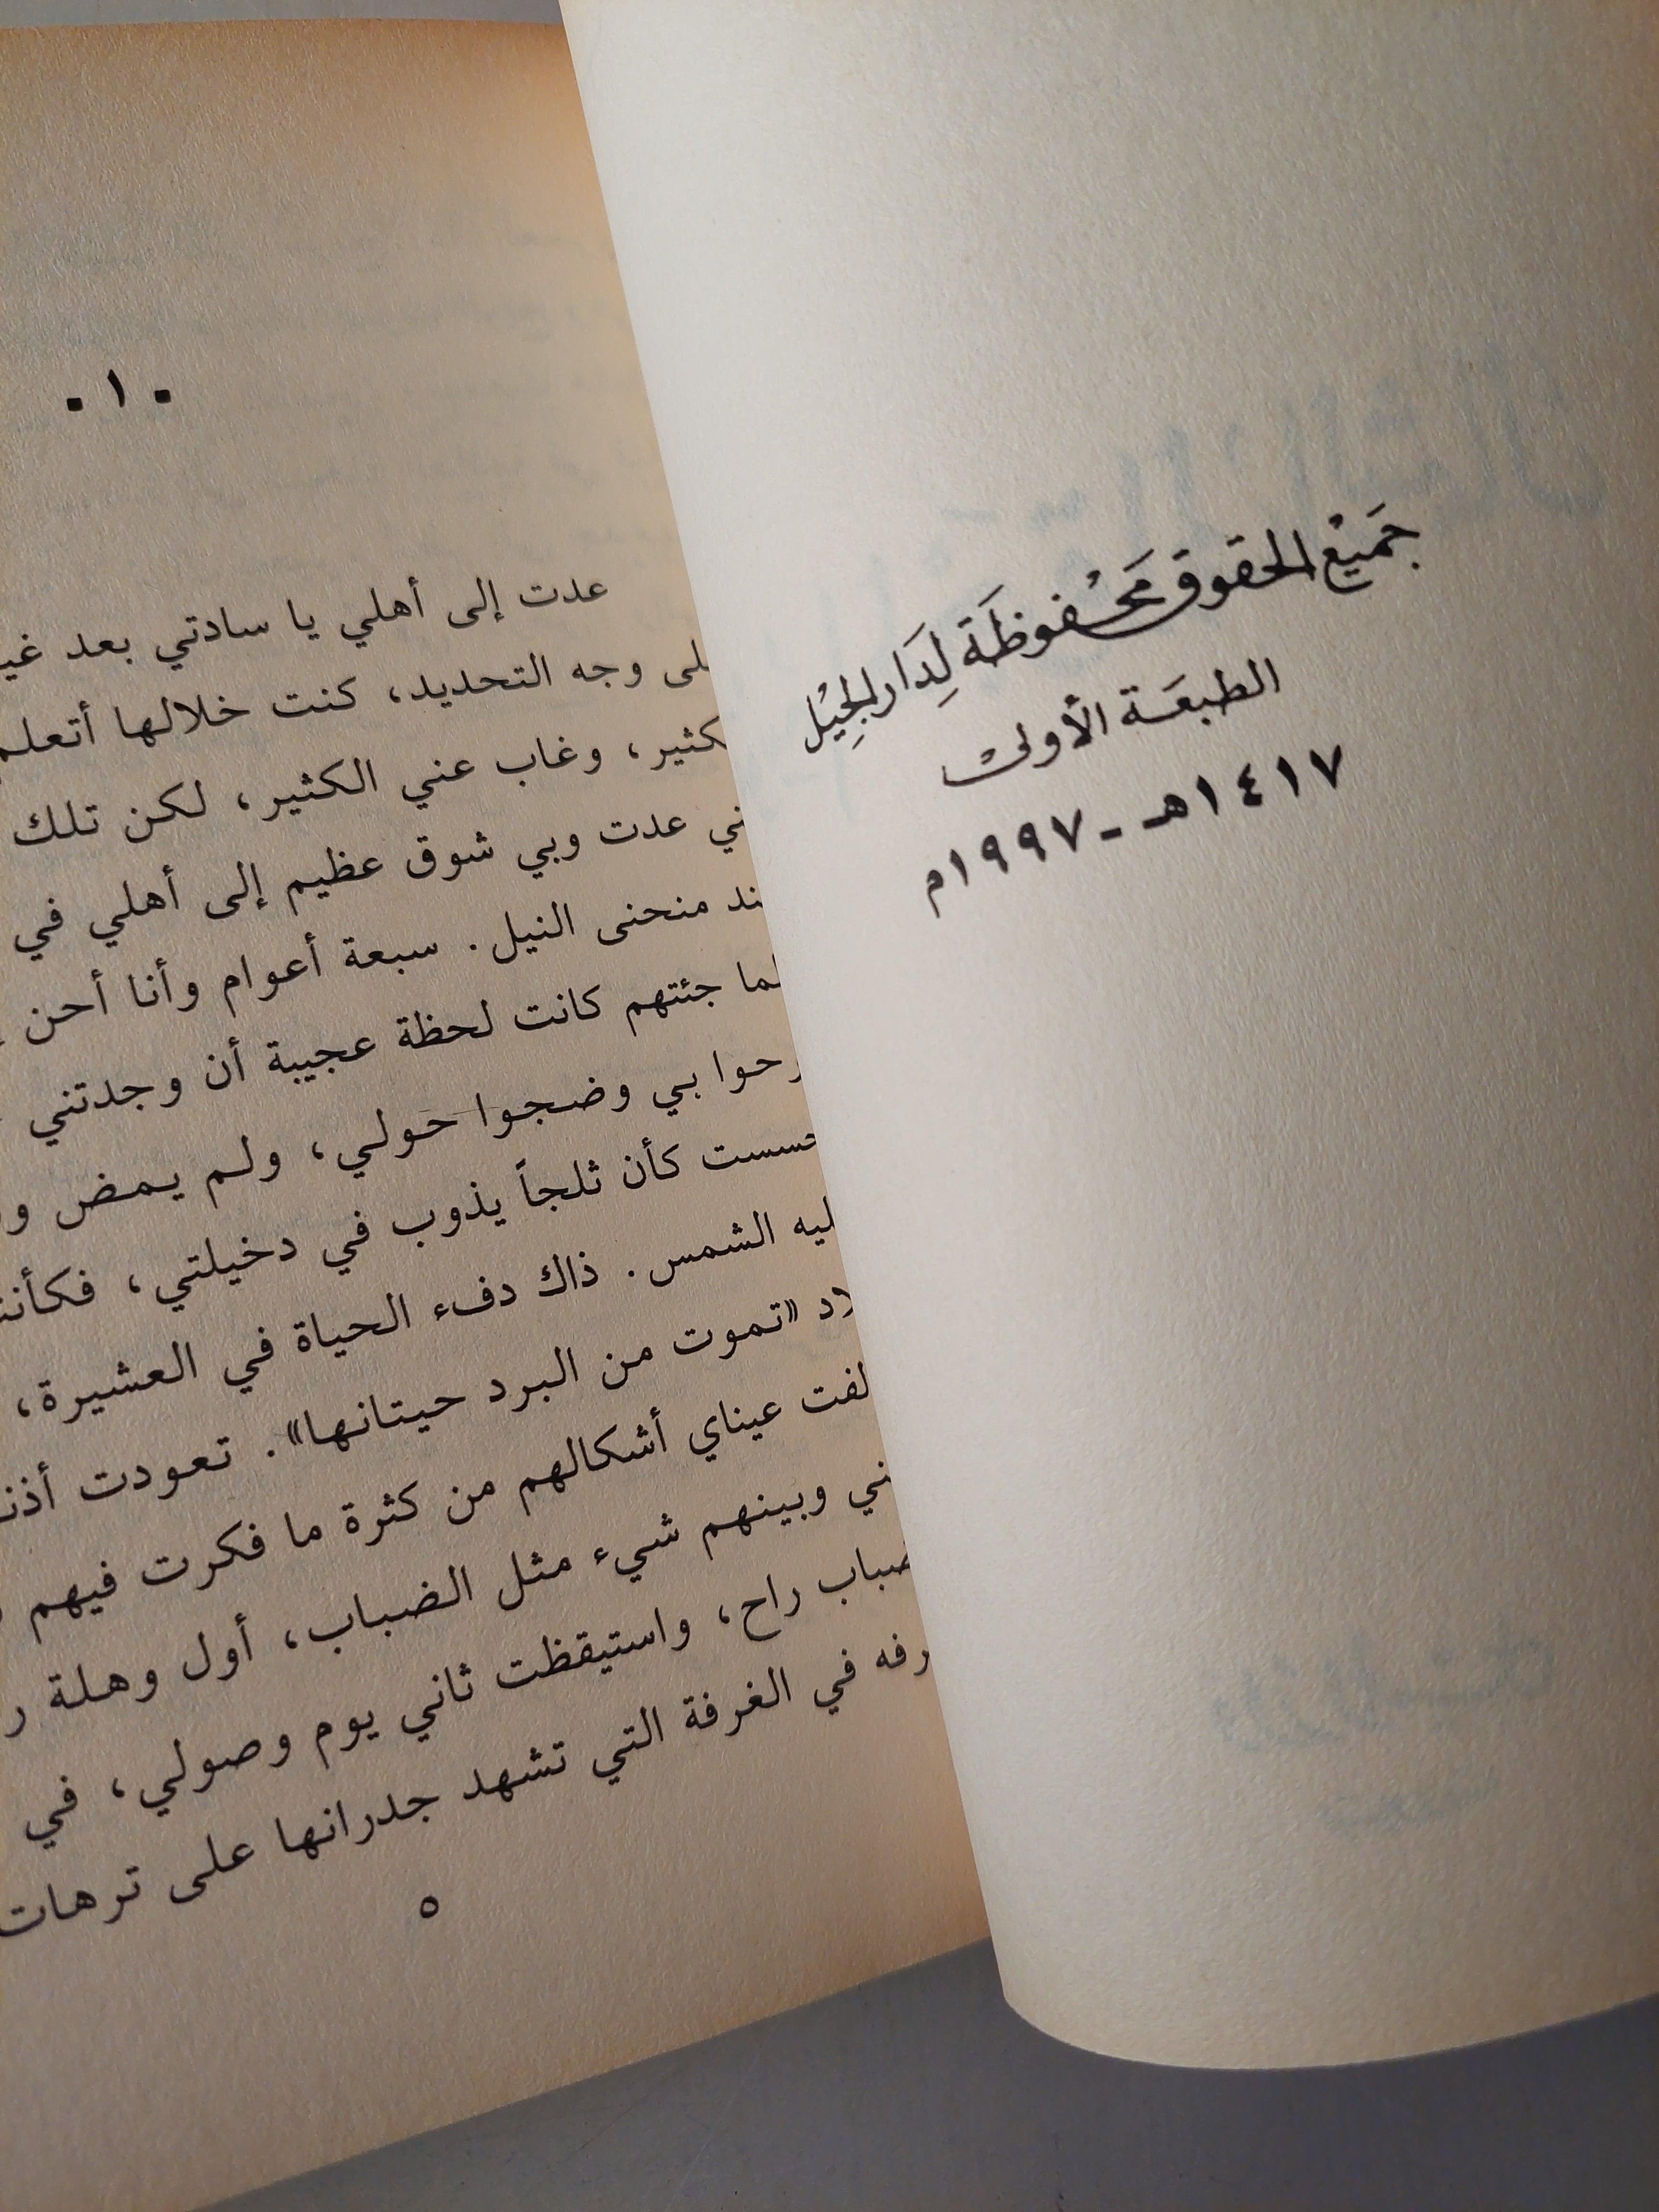 جَميْع الحقوق مَحْفوظَة لِدَار الجِيْل
الطبعَة الأولىْ
١٤١٧هـ - ١٩٩٧م
٠١٠
عدت إلى أهلي يا سادتي بعد
وجه التحديد، كنت خلالها أتعلم
وغاب عني الكثير، لكن تلك
عدت وبي شوق عظيم إلى أهلي في
منحنى النيل. سبعة أعوام وأنا أحن
جئتهم كانت لحظة عجيبة أن وجدتني
بي وضجوا حولي، ولم يمض
كأن ثلجاً يذوب في دخيلتي،
الشمس. ذاك دفء الحياة في العشيرة،
«تموت من البرد حيتانها». تعودت
عيناي أشكالهم من كثرة ما فكرت فيهم
وبينهم شيء مثل الضباب، أول وهلة
راح، واستيقظت ثاني يوم وصولي، في
في الغرفة التي تشهد جدرانها على ترهات
٥